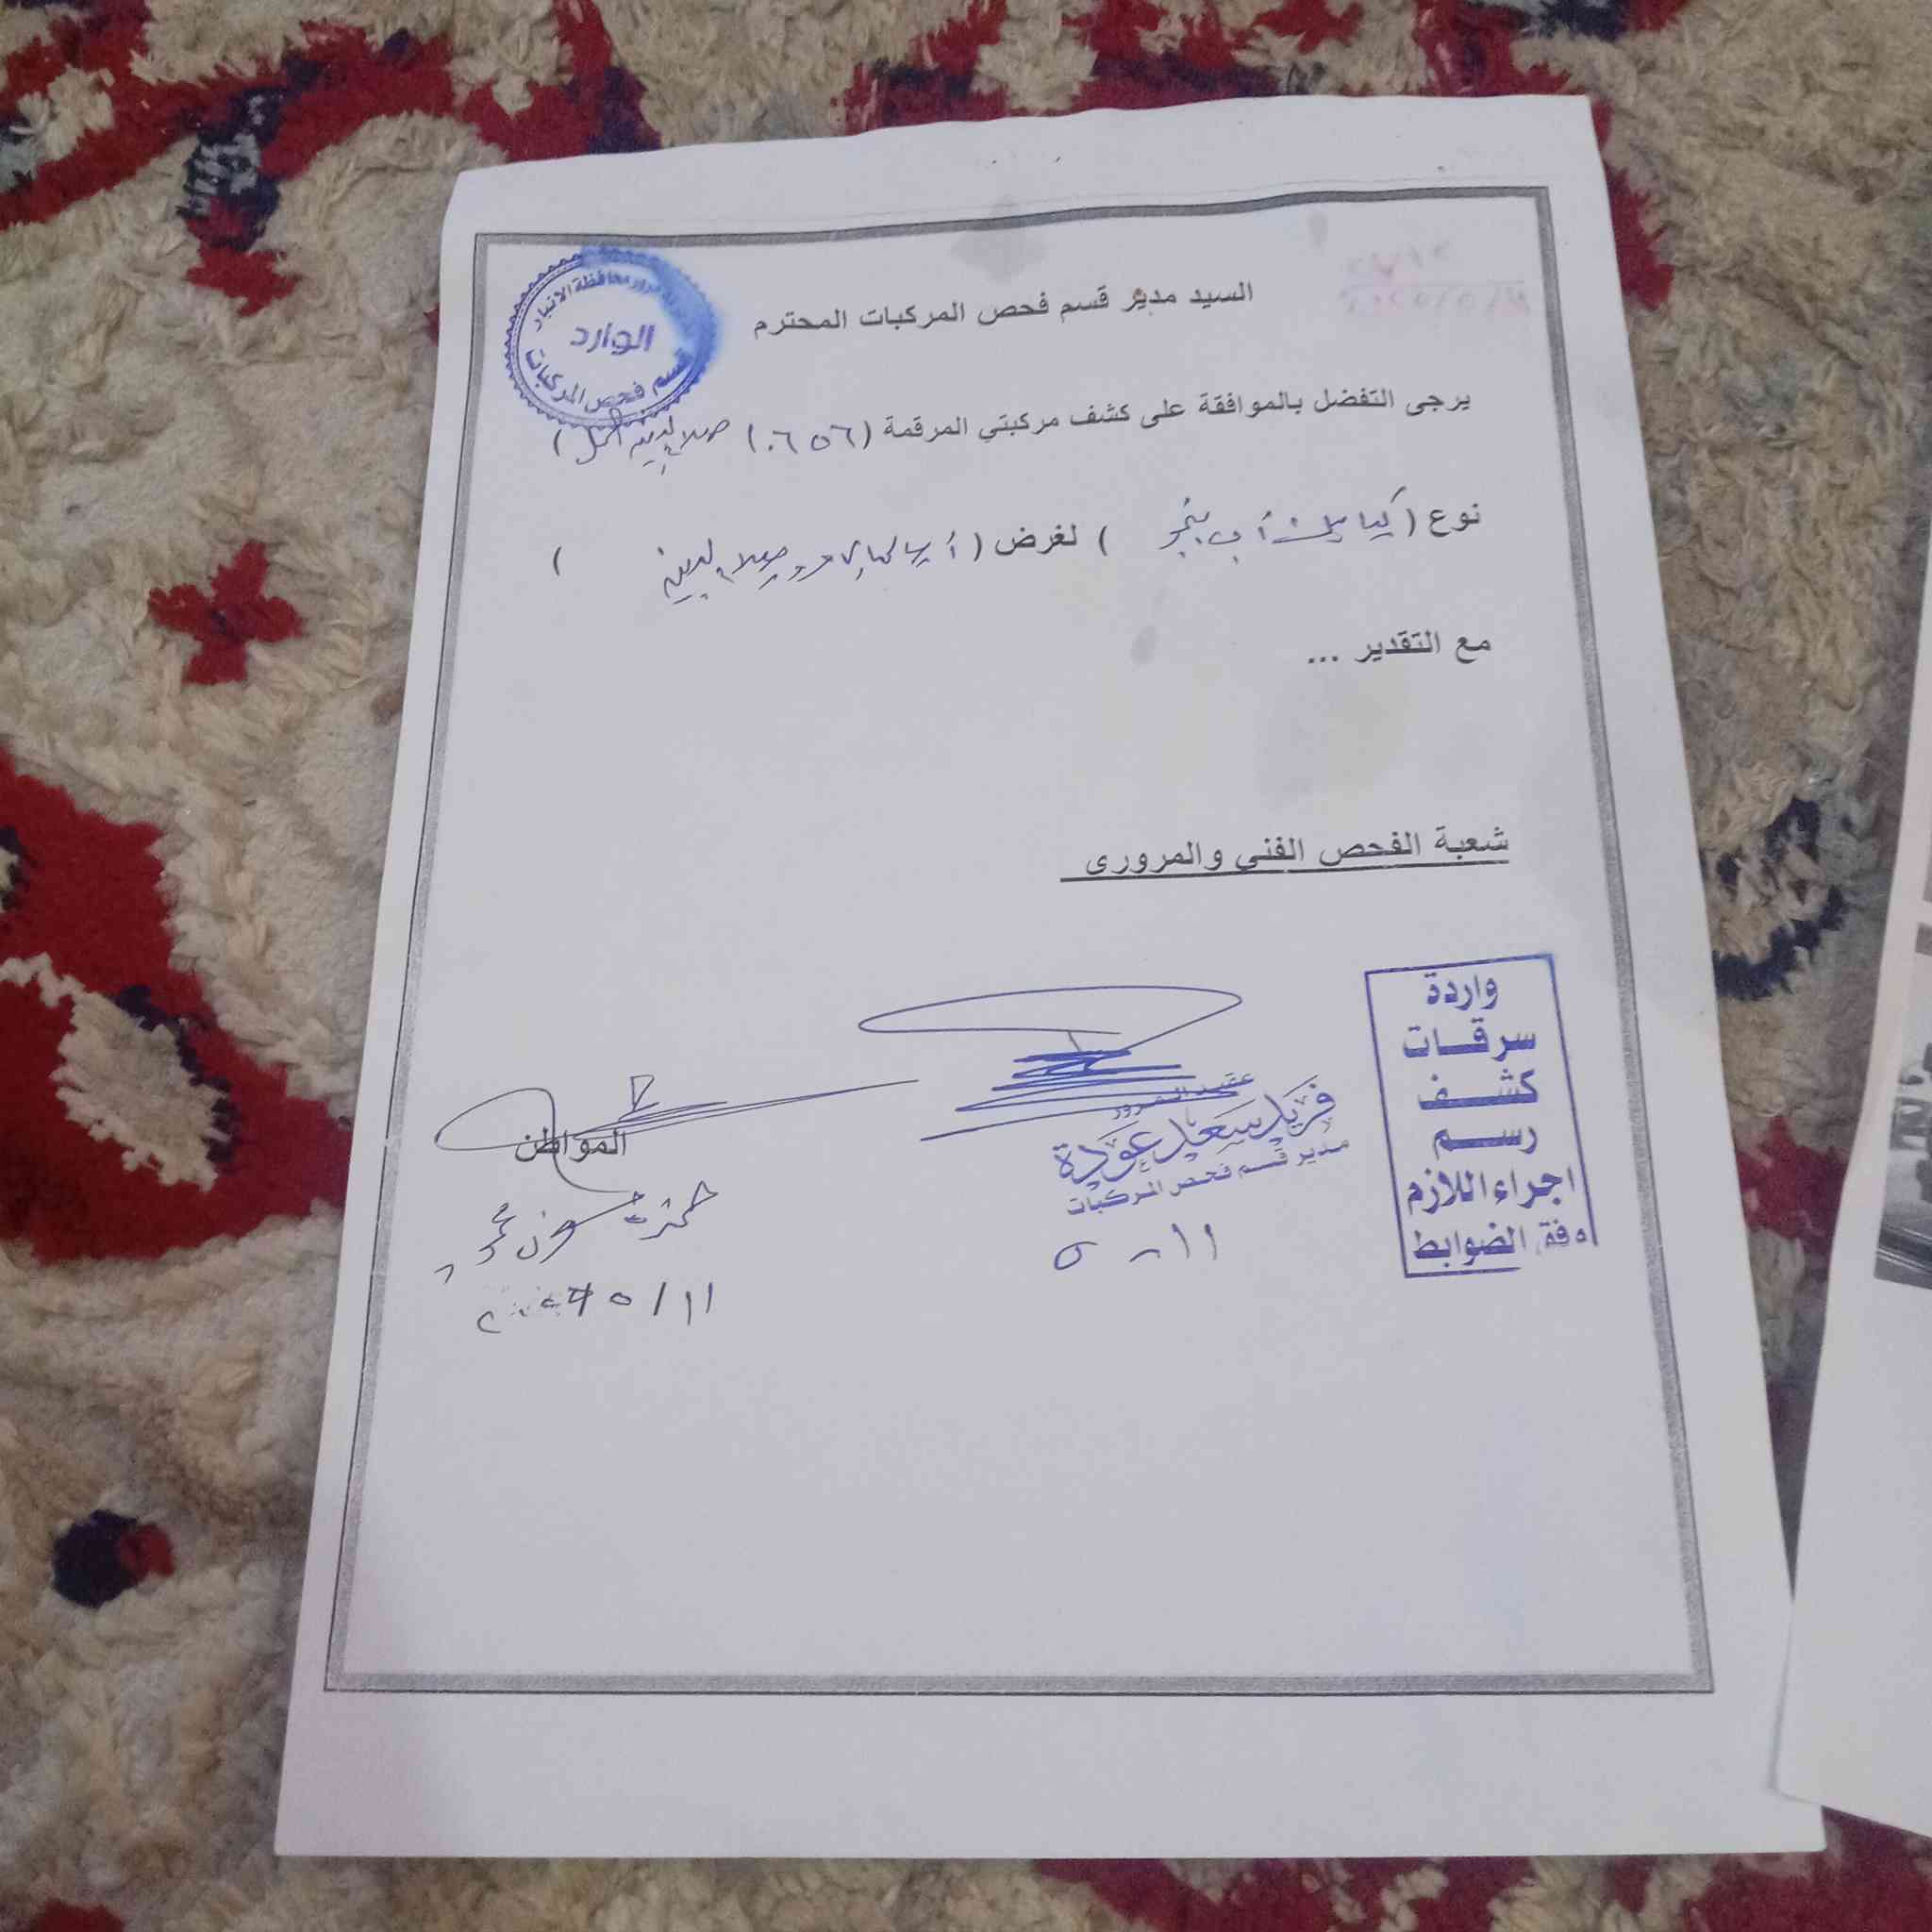 السيد مدير قسم فحص المركبات المحترم
الوارد
قسم فحص المركبات
يرجى التفضل بالموافقة على كشف مركبتي المرقمة (٠٦٥٦) صلاح الدين حمل)
نوع (كيا بيك أب بنجو) لغرض (أرسالها الى مرور صلاح الدين)
مع التقدير ...
شعبة الفحص الفني والمروري
واردة
سرقات
كشف
رسم
اجراء اللازم
وفق الضوابط
عقيد المرور
فريد سعيد عودة
مدير قسم فحص المركبات
١١ - ٥
المواطن
حمزة
١١/٥